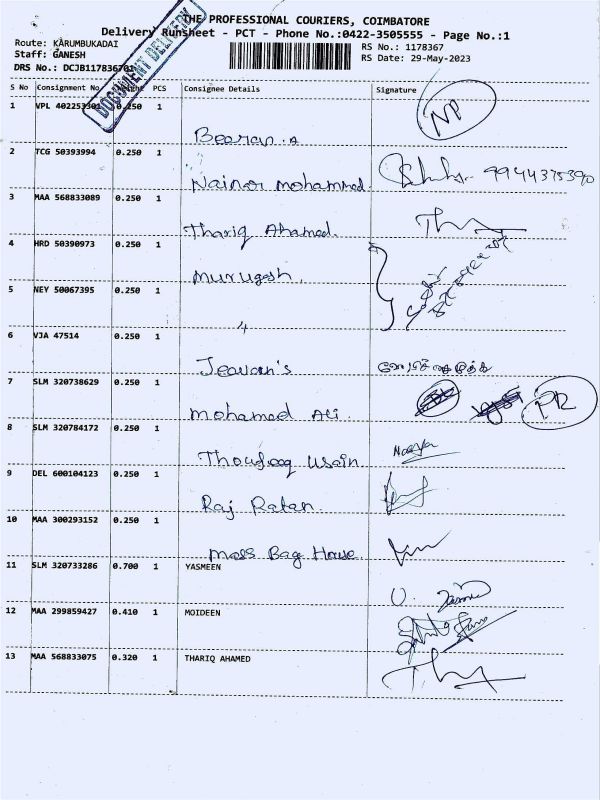 THE PROFESSIONAL COURIERS, COIMBATORE
Delivery Runsheet - PCT - Phone No.:0422-3505555 - Page No.:1
Route: KARUMBUKADAI
Staff: GANESH
DRS No.: DCJB1178367
RS No.: 1178367
RS Date: 29-May-2023
DOCUMENT DELIVERY
S No Consignment No PCS Consignee Details Signature
1 VPL 402253301 0.250 1 NP
Bearan. A
2 TCG 50393994 0.250 1
Nainor mohammed. 9944375390
3 MAA 568833089 0.250 1
Thariq Ahamed.
4 HRD 50390973 0.250 1
Murugesh.
5 NEY 50067395 0.250 1
"
6 VJA 47514 0.250 1
Jeavan's
7 SLM 320738629 0.250 1
Mohamed Ali PR
8 SLM 320784172 0.250 1
Thoufooq Usain
9 DEL 600104123 0.250 1
Raj Ratan.
10 MAA 300293152 0.250 1
Mass Bag House.
11 SLM 320733286 0.700 1 YASMEEN
12 MAA 299859427 0.410 1 MOIDEEN
13 MAA 568833075 0.320 1 THARIQ AHAMED